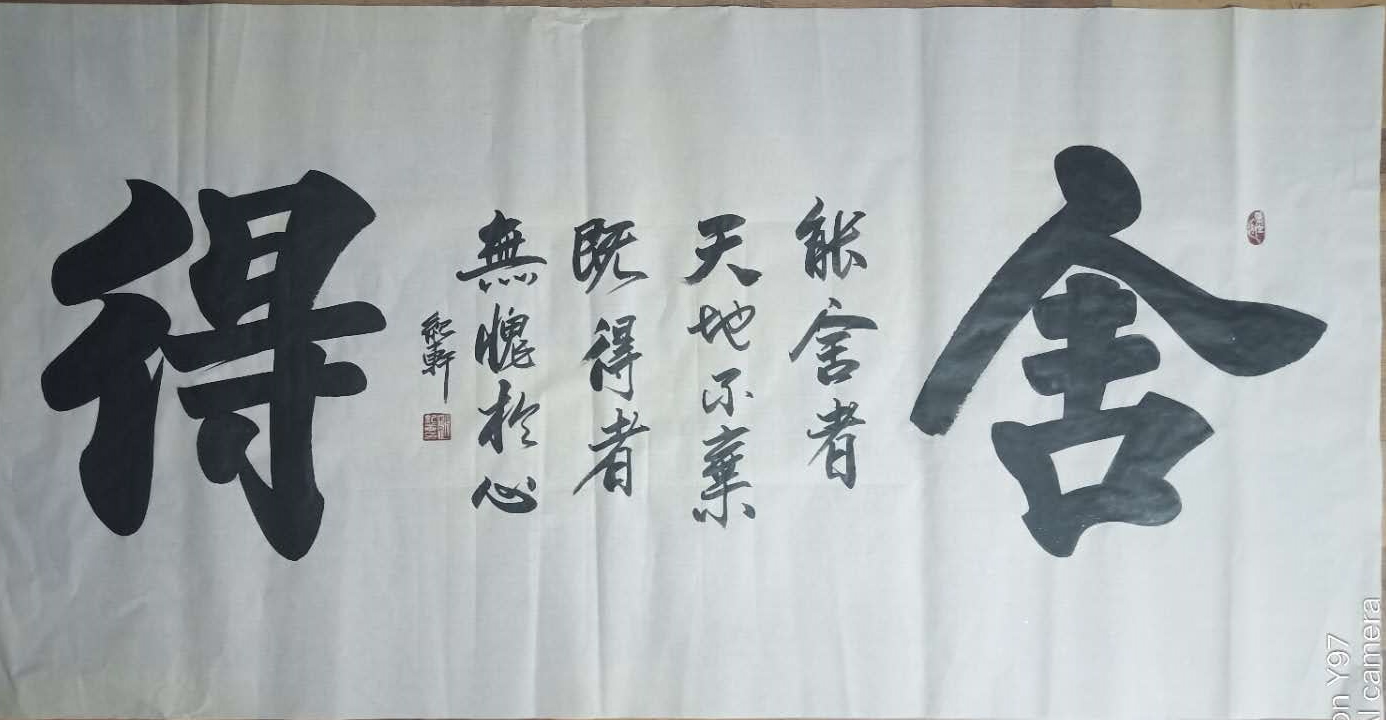 舍
能舍者
天地不棄
既得者
無愧於心
紀軒
得
on Y97
AI camera